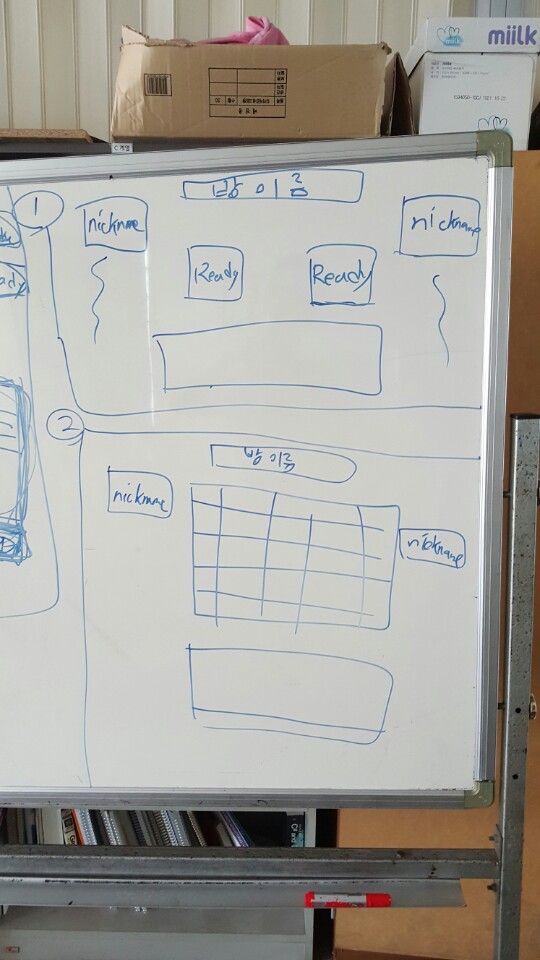 miilk
C 게임
1
방 이름
nickname
nickname
Ready
Ready
ady
2
방 이름
nickname
nickname